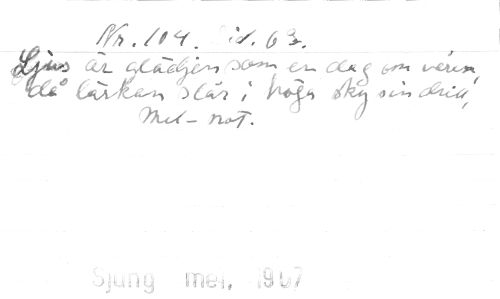 Nr. 104. Sid. 63.
Ljus är glädjen som en dag om våren,
då lärkan slår i höga sky sin drill,
Mel-not.
Sjung mei, 1967